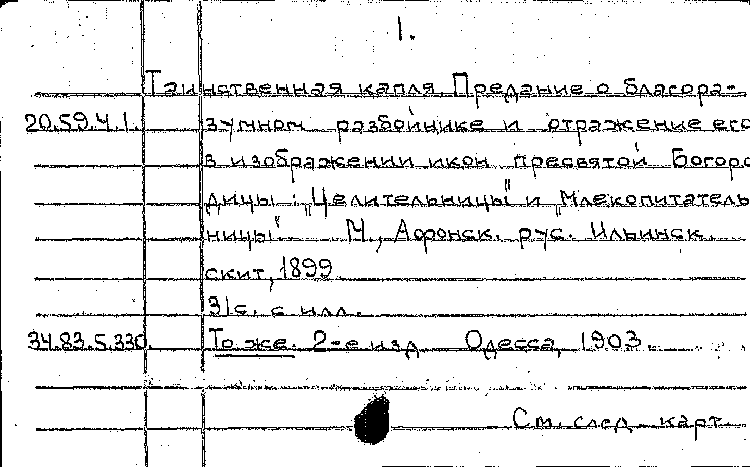 1.
Таинственная капля. Предание о благора-
20.59.4.1. зумном разбойнике и отражение его
в изображении икон пресвятой Богоро
дицы: "Целительницы" и "Млекопитатель
ницы". М., Афонск. рус. Ильинск.
скит, 1899
31с. с илл.
34.83.5.330. То же. 2-е изд Одесса, 1903.
См. след. карт.